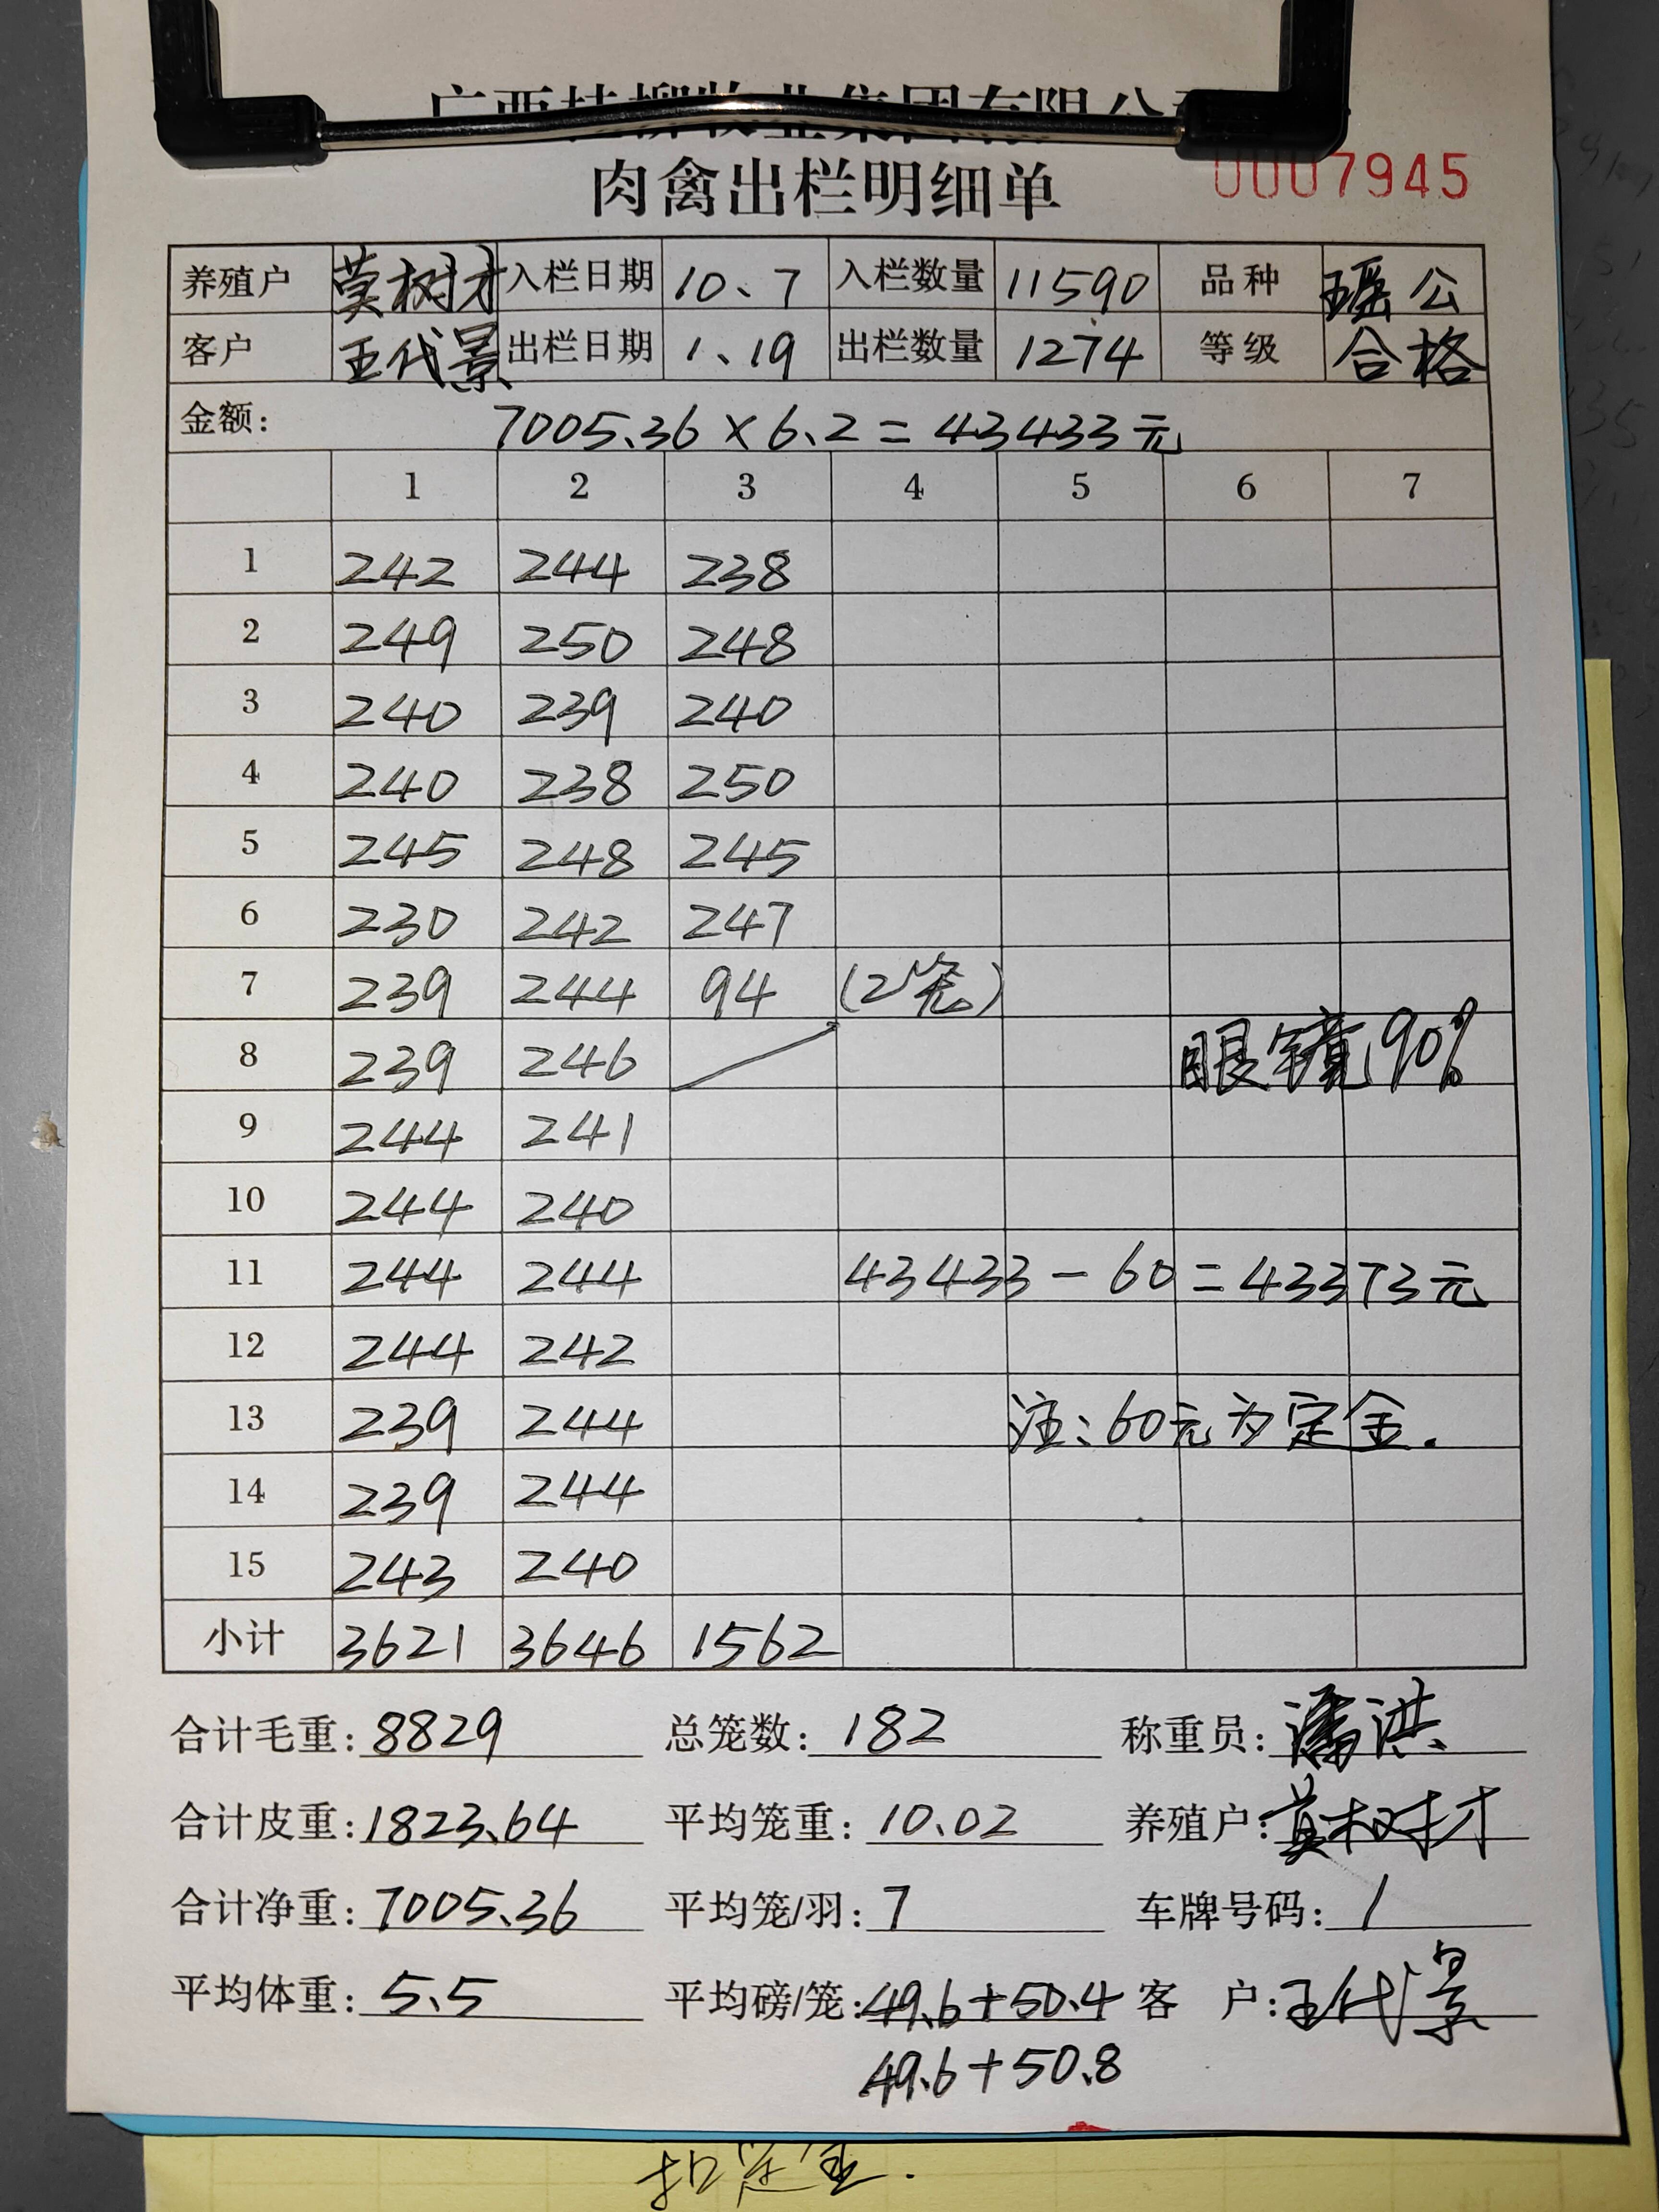 肉禽出栏明细单 0007945
养殖户 莫树才 入栏日期 10、7 入栏数量 11590 品种 瑶公
客户 王代景 出栏日期 1、19 出栏数量 1274 等级 合格
金额: 7005.36×6.2=43433元
1 2 3 4 5 6 7
1 242 244 238
2 249 250 248
3 240 239 240
4 240 238 250
5 245 248 245
6 230 242 247
7 239 244 94 (2笼)
8 239 246 眼镜90%
9 244 241
10 244 240
11 244 244 43433-60=43373元
12 244 242
13 239 244 注:60元为定金.
14 239 244
15 243 240
小计 3621 3646 1562
合计毛重:8829 总笼数:182 称重员:潘洪
合计皮重:1823.64 平均笼重:10.02 养殖户:莫树才
合计净重:7005.36 平均笼/羽:7 车牌号码:1
平均体重:5.5 平均磅/笼:49.6+50.4 客户:王代景
49.6+50.8
扣定金.